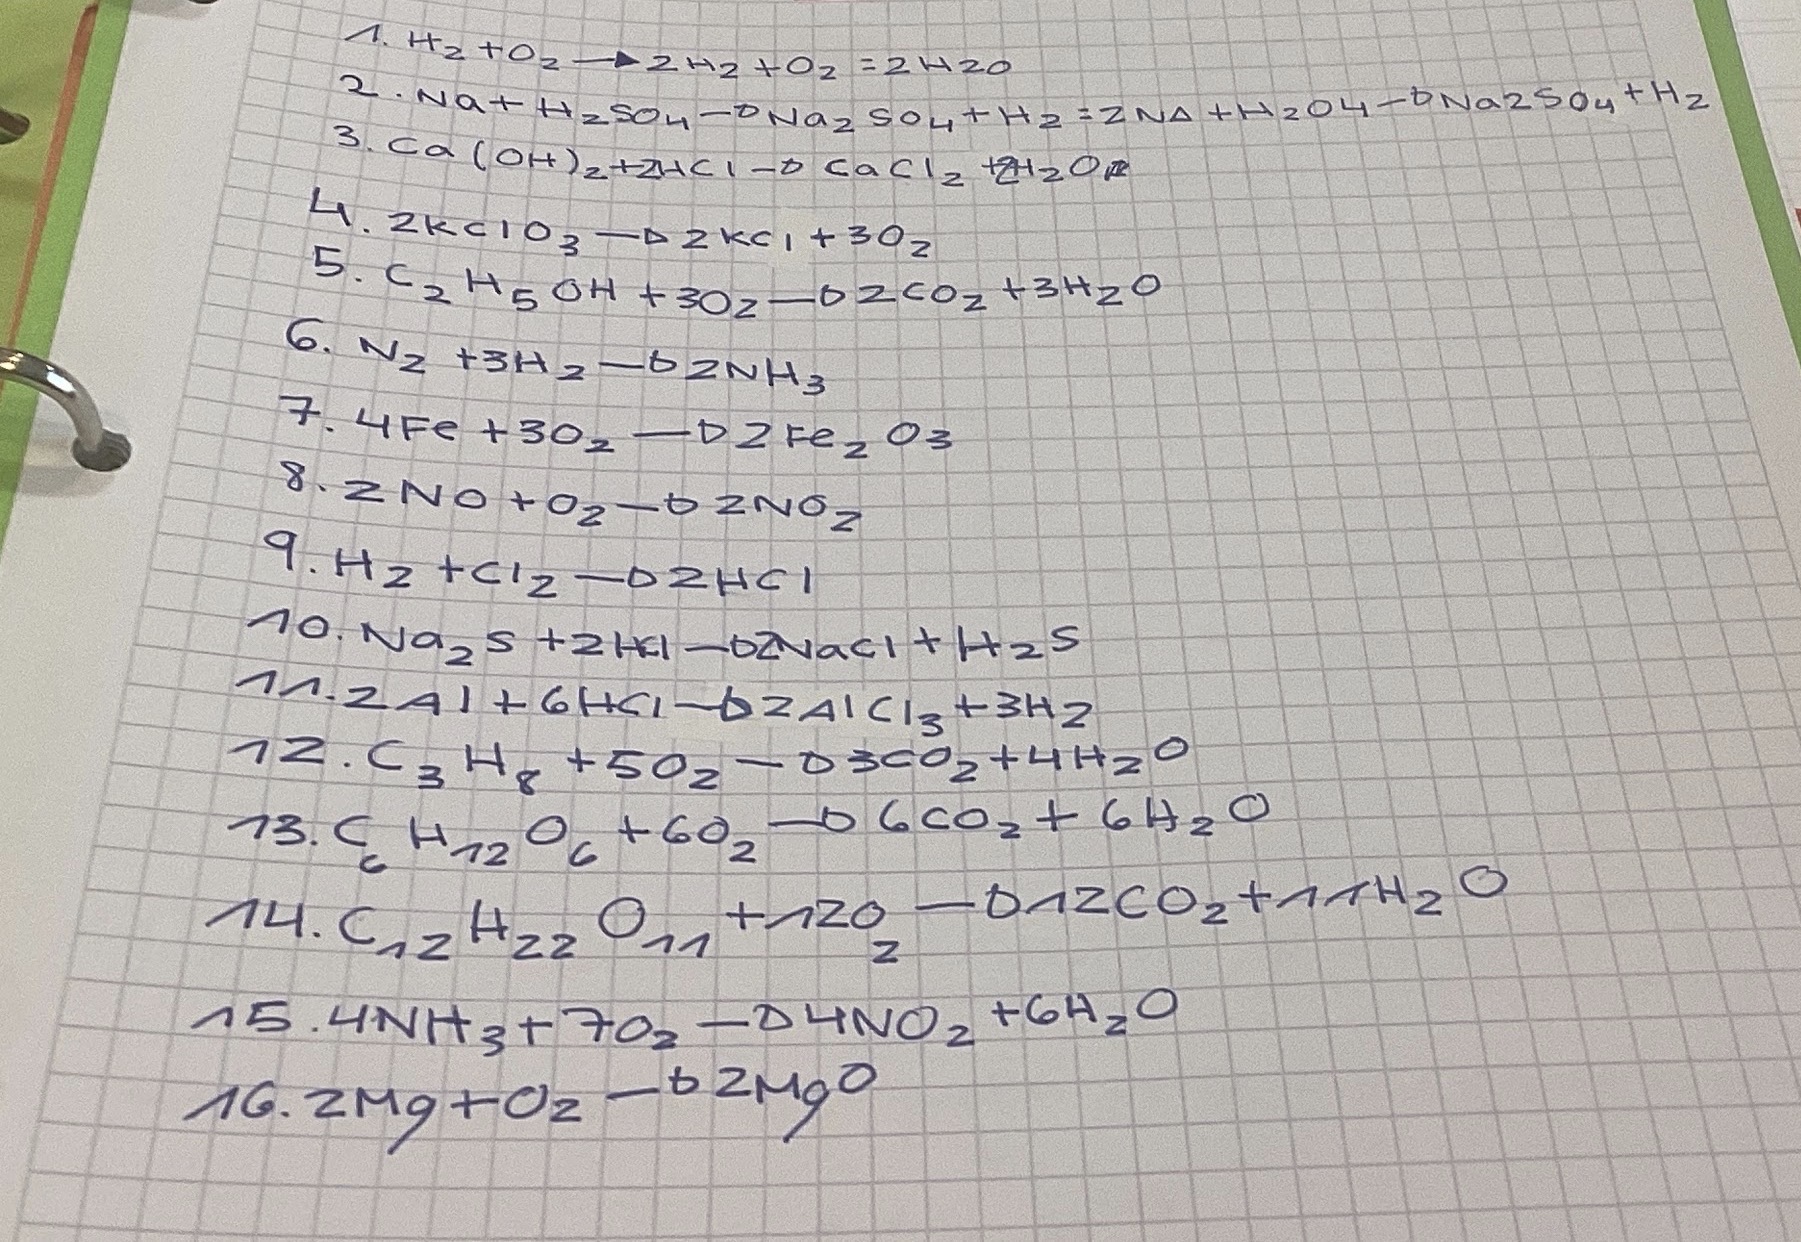 1. H₂ + O₂ → 2H₂ + O₂ = 2H2O
2. Na + H₂SO₄ → Na₂SO₄ + H₂ = 2NA + H₂O4 → Na2SO₄ + H₂
3. Ca(OH)₂ + 2HCl → CaCl₂ + 2H₂O
4. 2KClO₃ → 2KCl + 3O₂
5. C₂H₅OH + 3O₂ → 2CO₂ + 3H₂O
6. N₂ + 3H₂ → 2NH₃
7. 4Fe + 3O₂ → 2Fe₂O₃
8. 2NO + O₂ → 2NO₂
9. H₂ + Cl₂ → 2HCl
10. Na₂S + 2HCl → 2NaCl + H₂S
11. 2Al + 6HCl → 2AlCl₃ + 3H₂
12. C₃H₈ + 5O₂ → 3CO₂ + 4H₂O
13. C₆H₁₂O₆ + 6O₂ → 6CO₂ + 6H₂O
14. C₁₂H₂₂O₁₁ + 12O₂ → 12CO₂ + 11H₂O
15. 4NH₃ + 7O₂ → 4NO₂ + 6H₂O
16. 2Mg + O₂ → 2MgO